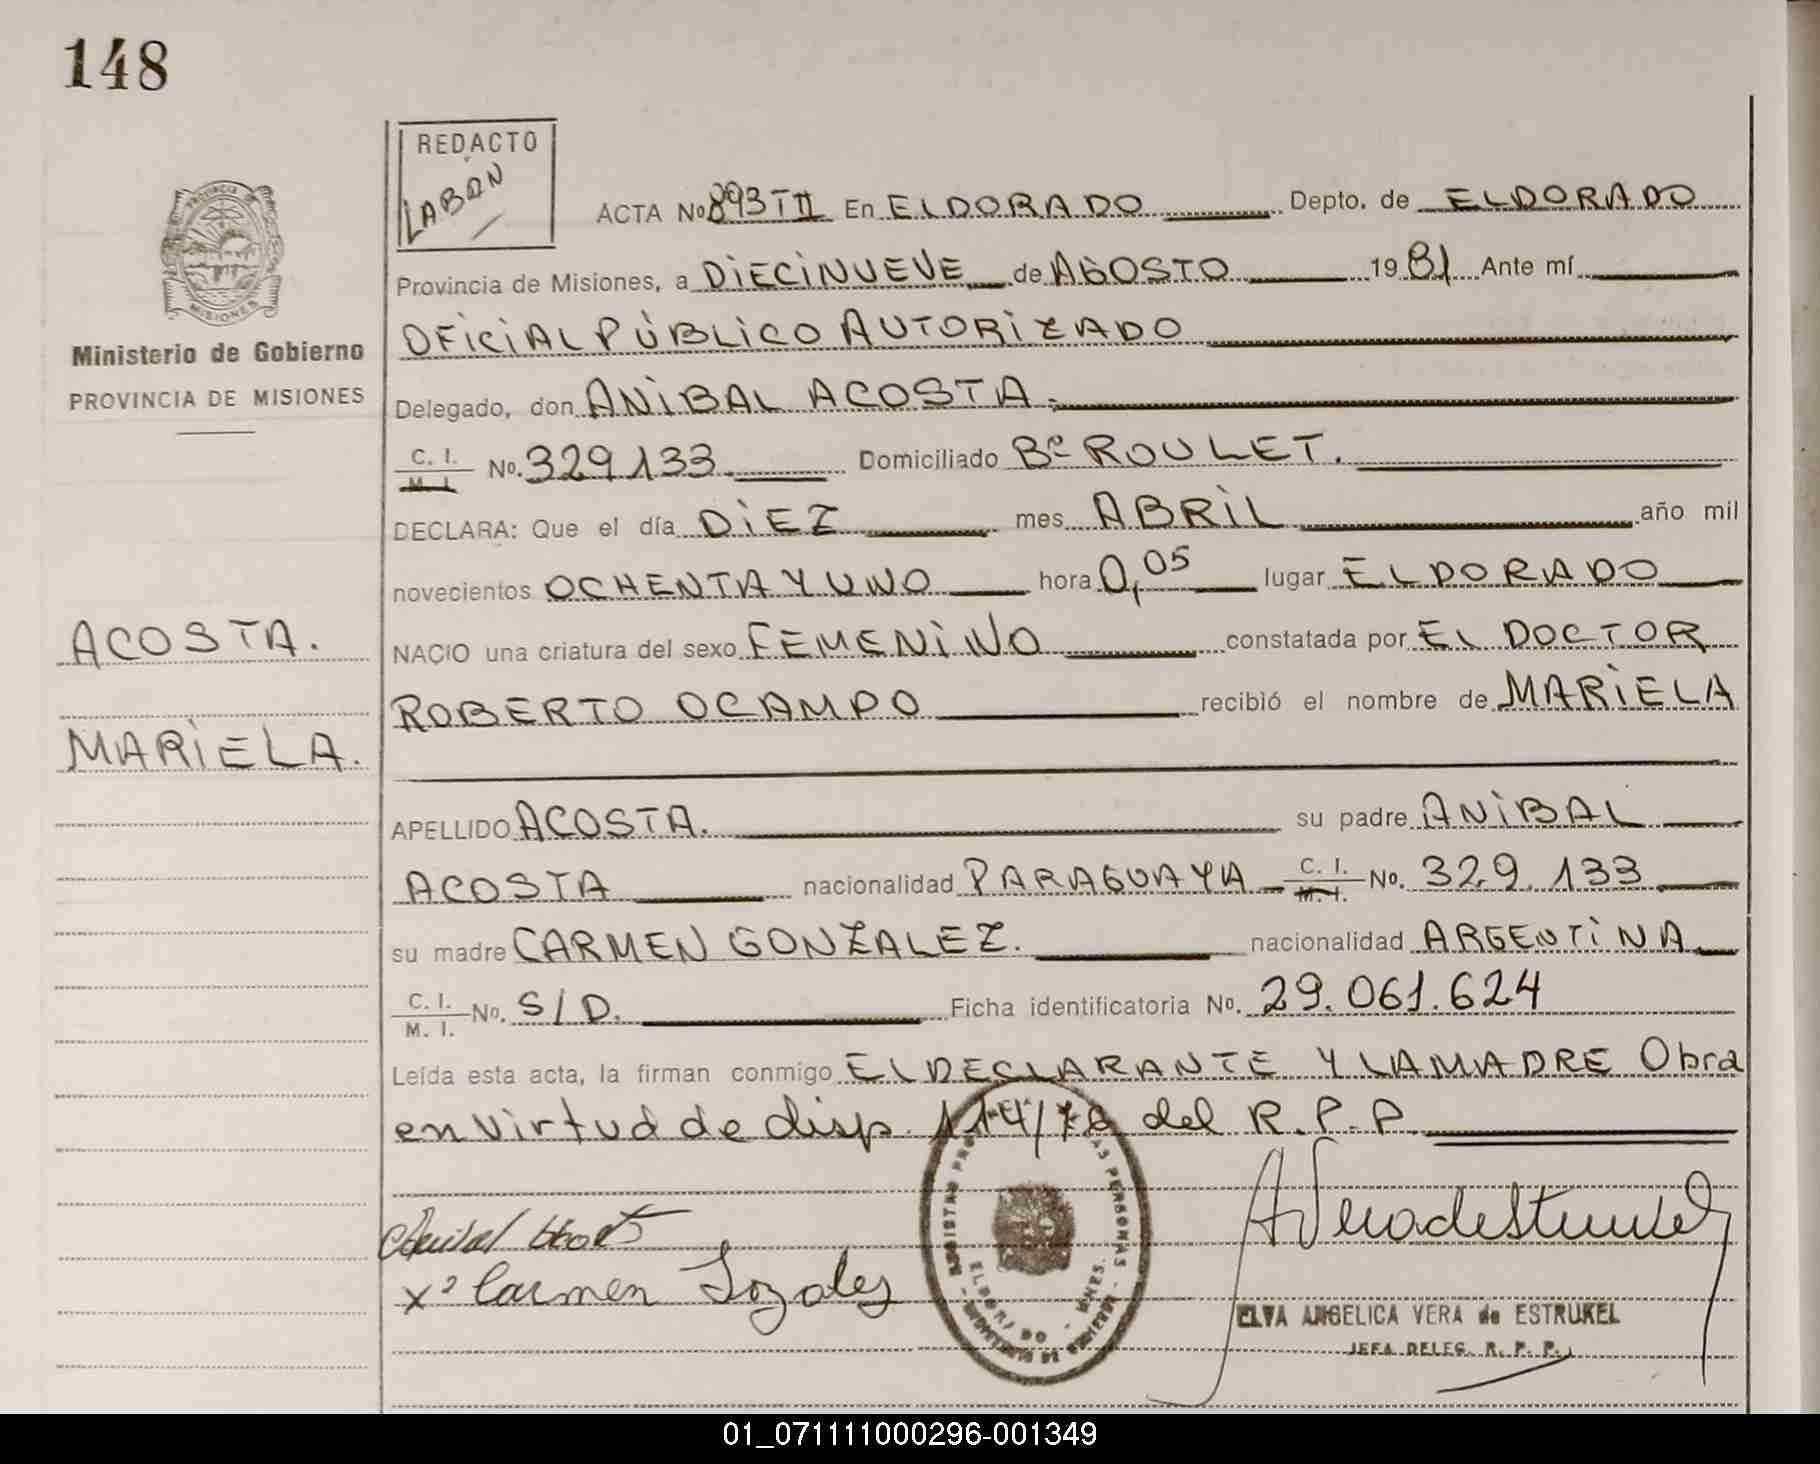 148
REDACTO
LABAN
PROVINCIA DE
MISIONES
Ministerio de Gobierno
PROVINCIA DE MISIONES
ACTA No 893 T II En ELDORADO Depto. de ELDORADO
Provincia de Misiones, a DIECINUEVE de AGOSTO 1981 Ante mí
OFICIAL PÚBLICO AUTORIZADO
Delegado, don ANIBAL ACOSTA.
C. I.
M. I. No. 329133 Domiciliado Bº ROULET.
DECLARA: Que el día DIEZ mes ABRIL año mil
novecientos OCHENTA Y UNO hora 0,05 lugar ELDORADO
NACIO una criatura del sexo FEMENINO constatada por EL DOCTOR
ROBERTO OCAMPO recibió el nombre de MARIELA
ACOSTA.
MARIELA.
APELLIDO ACOSTA. su padre ANIBAL
ACOSTA nacionalidad PARAGUAYA C. I. M. I. No. 329.133
su madre CARMEN GONZALEZ. nacionalidad ARGENTINA
C. I.
M. I. No. S/D. Ficha identificatoria No. 29.061.624
Leída esta acta, la firman conmigo EL DECLARANTE Y LA MADRE Obra
en virtud de disp. 114/78 del R.P.P.
Carmen
ELDORADO - MNES.
ELVA ANGELICA VERA de ESTRUKEL
JEFA DELEG. R. P. P.
01_071111000296-001349